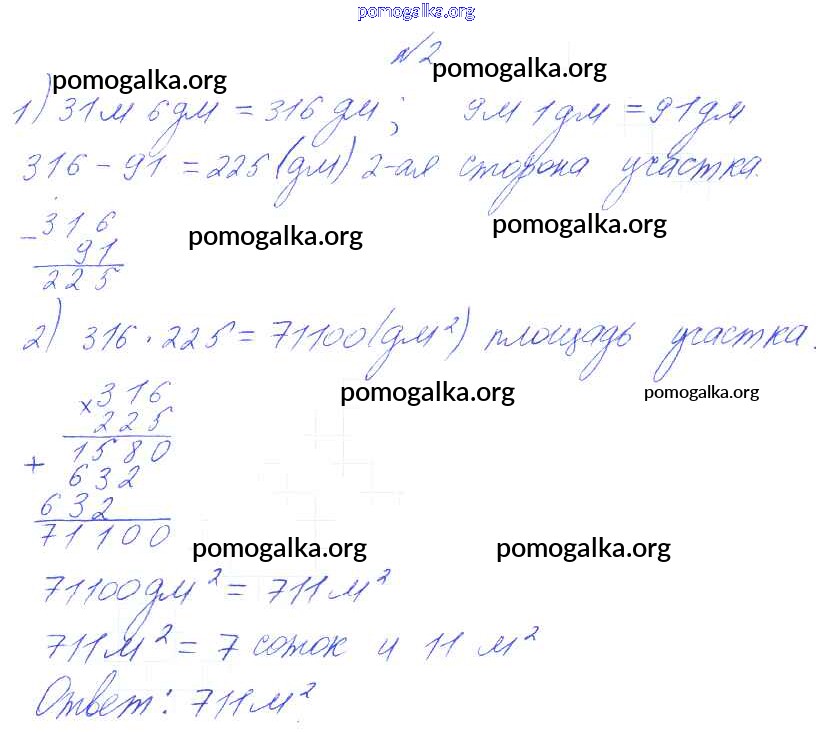 pomogalka.org
№2
pomogalka.org pomogalka.org
1) 31м 6дм = 316 дм; 9м 1дм = 91дм
316 - 91 = 225 (дм) 2-ая сторона участка.
- 316
91
225
pomogalka.org pomogalka.org
2) 316 · 225 = 71100 (дм²) площадь участка.
pomogalka.org pomogalka.org
x 316
225
1580
+ 632
632
71100
pomogalka.org pomogalka.org
71100 дм² = 711 м²
711 м² = 7 соток и 11 м²
Ответ: 711 м²